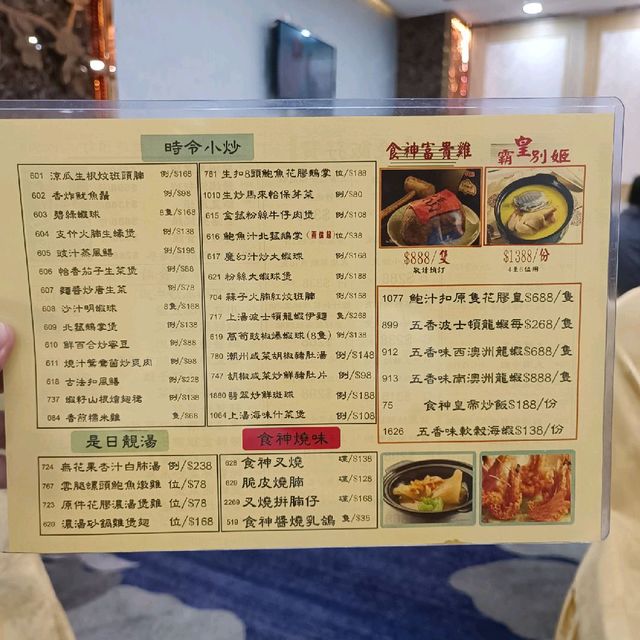 時令小炒
601 涼瓜生根炆斑頭腩 例/$168
602 香炸魷魚鬚 例/$98
603 碧綠蝦球 8隻/$168
604 支竹火腩生蠔煲 例/$138
605 豉汁蒸風鱔 例/$198
606 帕香茄子生菜煲 例/$88
607 麵醬炒唐生菜 例/$78
608 沙汁明蝦球 8隻/$188
609 北菇鵝掌煲 例/$138
610 鮮百合炒蜜豆 例/$88
611 燒汁鴛鴦菌炒爽肉 例/$98
618 古法扣風鱔 例/$228
737 蝦籽山根燴翅裙 例/$138
084 香煎糯米雞 隻/$68
781 生扣8頭鮑魚花膠鵝掌 位/$188
1010 生炒馬來帕保芽菜 例/$80
615 金菇粉絲牛仔肉煲 例/$108
616 鮑魚汁北菇鵝掌 位/$38
617 魔幻汁炒大蝦球 例/$188
621 粉絲大蝦球煲 例/$188
704 辣子火腩紅炆斑腩 例/$158
717 上湯波士頓龍蝦伊麵 隻/$268
819 萵筍豉椒爆蝦球(8隻) 例/$138
780 潮州咸菜胡椒豬肚湯 例/$148
747 胡椒咸菜炒鮮豬肚片 例/$98
1880 翡翠炒鮮斑球 例/$188
1064 上湯海味什菜煲 例/$108
食神富貴雞
$888/隻
敬請預訂
霸皇別姬
$1388/份
4至6位用
1077 鮑汁扣原隻花膠皇$688/隻
899 五香波士頓龍蝦每$268/隻
912 五香味西澳洲龍蝦$688/隻
913 五香味南澳洲龍蝦$888/隻
75 食神皇帝炒飯$188/份
1626 五香味軟殼海蝦$138/份
是日靚湯
724 無花果杏汁白肺湯 例/$238
767 雲腿螺頭鮑魚燉雞 位/$78
723 原件花膠濃湯煲雞 位/$78
620 濃湯砂鍋雞煲翅 位/$168
食神燒味
628 食神叉燒 碟/$138
820 脆皮燒腩 碟/$128
2269 叉燒拼腩仔 碟/$168
519 食神醬燒乳鴿 隻/$35